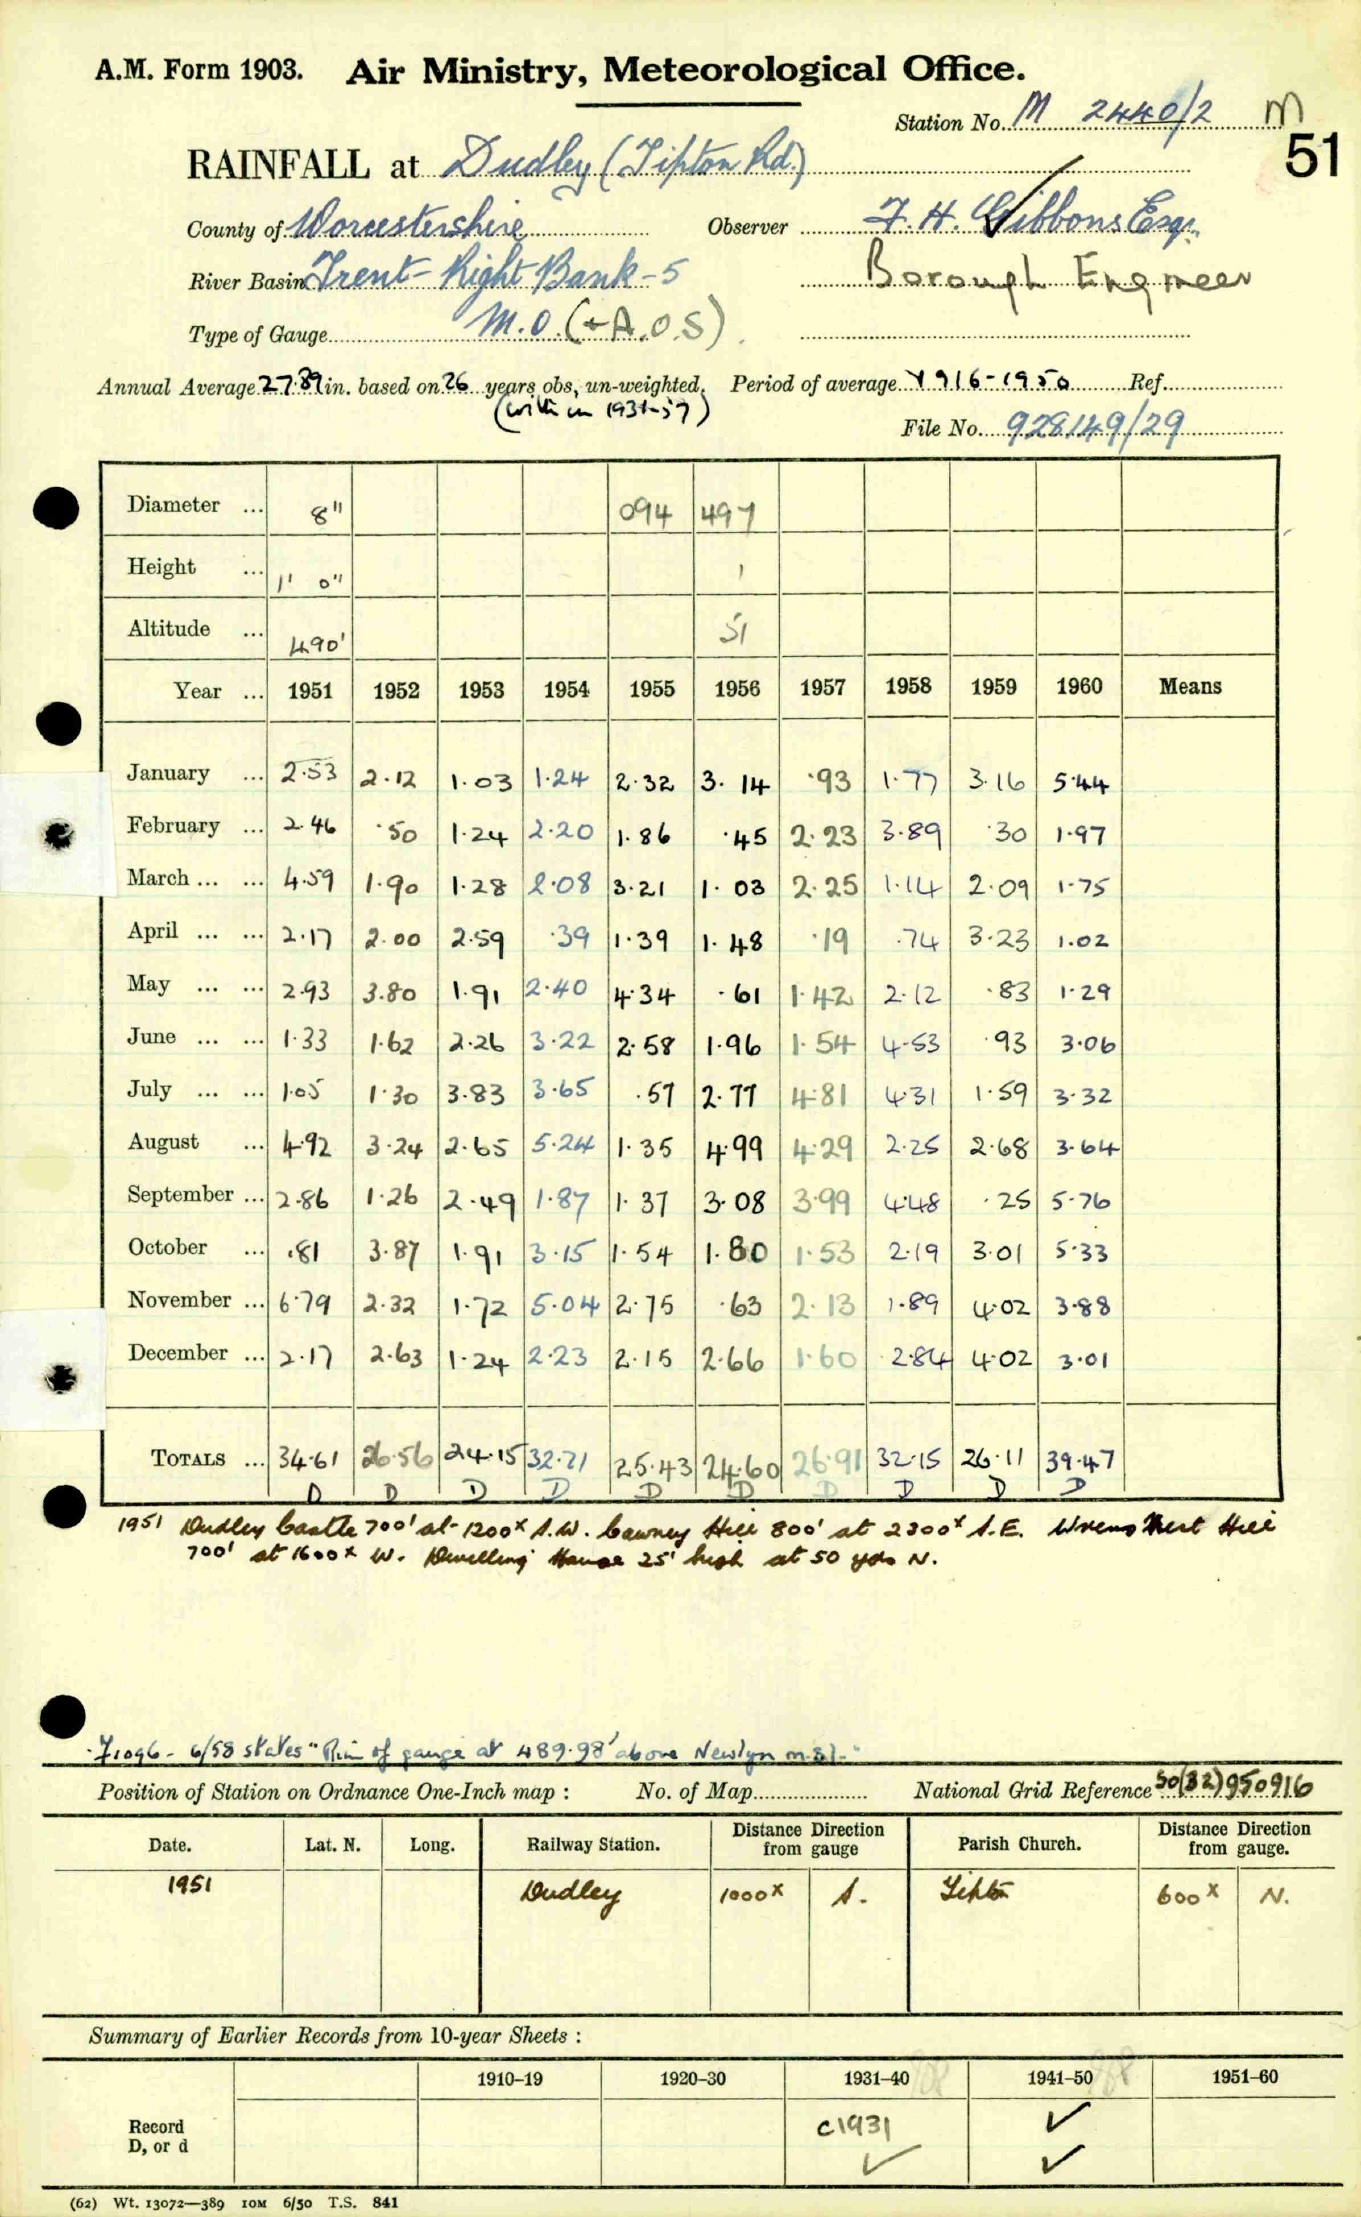 A.M. Form 1903. Air Ministry, Meteorological Office.
Station No. M 2440/2 M
51
RAINFALL at Dudley (Tipton Rd.)
County of Worcestershire Observer F. H. Gibbons Esq.
River Basin Trent - Right Bank - 5 Borough Engineer
Type of Gauge M.O. (+A.O.S)
Annual Average 27.89 in. based on 26 years obs, un-weighted. Period of average 1916-1950 Ref.
(within 1931-57)
File No. 928149/29
Diameter ... 8" 094 497
Height ... 1' 0" 1
Altitude ... 490' 51
Year ... 1951 1952 1953 1954 1955 1956 1957 1958 1959 1960 Means
January ... 2.53 2.12 1.03 1.24 2.32 3.14 .93 1.77 3.16 5.44
February ... 2.46 .50 1.24 2.20 1.86 .45 2.23 3.89 .30 1.97
March ... ... 4.59 1.90 1.28 2.08 3.21 1.03 2.25 1.14 2.09 1.75
April ... ... 2.17 2.00 2.59 .39 1.39 1.48 .19 .74 3.23 1.02
May ... ... 2.93 3.80 1.91 2.40 4.34 .61 1.42 2.12 .83 1.29
June ... ... 1.33 1.62 2.26 3.22 2.58 1.96 1.54 4.53 .93 3.06
July ... ... 1.05 1.30 3.83 3.65 .57 2.77 4.81 4.31 1.59 3.32
August ... 4.92 3.24 2.65 5.24 1.35 4.99 4.29 2.25 2.68 3.64
September ... 2.86 1.26 2.49 1.87 1.37 3.08 3.99 4.48 .25 5.76
October ... .81 3.87 1.91 3.15 1.54 1.80 1.53 2.19 3.01 5.33
November ... 6.79 2.32 1.72 5.04 2.75 .63 2.13 1.89 4.02 3.88
December ... 2.17 2.63 1.24 2.23 2.15 2.66 1.60 2.84 4.02 3.01
TOTALS ... 34.61 26.56 24.15 32.71 25.43 24.60 26.91 32.15 26.11 39.47
D D D D D D D D D D
1951 Dudley Castle 700' at 1200x S.W. Cawney Hill 800' at 2300x S.E. Wrens Nest Hill
700' at 1600x W. Dwelling House 25' high at 50 yds N.
F1096 - 6/58 states "Rim of gauge at 489.98' above Newlyn m.s.l."
Position of Station on Ordnance One-Inch map : No. of Map National Grid Reference 50(32)950916
Date. Lat. N. Long. Railway Station. Distance from gauge Direction Parish Church. Distance from gauge. Direction
1951 Dudley 1000x S. Tipton 600x N.
Summary of Earlier Records from 10-year Sheets :
1910–19 1920–30 1931–40 1941–50 1951–60
Record c1931 ✓
D, or d ✓ ✓
(62) Wt. 13072—389 IOM 6/50 T.S. 841